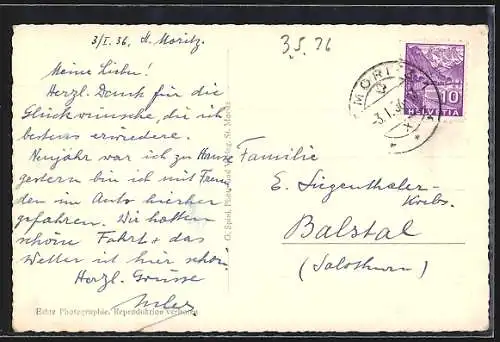 3/I. 36, St. Moritz.
3.5.36
Meine Lieben!
Herzl. Dank für die
Glückwünsche, die ich
bestens erwiedere.
Neujahr war ich zu Hause
gestern bin ich mit Freun
den im Auto hierher
gefahren. Wir hatten
schöne Fahrt & das
Wetter ist hier schön.
Herzl. Grüsse
Echte Photographie. Reproduktion verboten
St. Moritz
ST. MORITZ
-3.I.36
10
HELVETIA
Familie
E. Siegenthaler-
Krebs.
Balstal
(Solothurn)